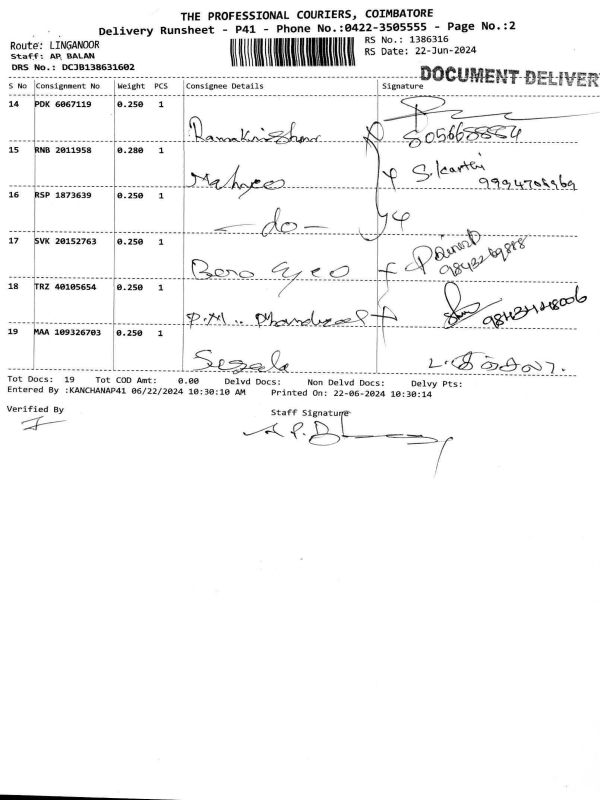 THE PROFESSIONAL COURIERS, COIMBATORE
Delivery Runsheet - P41 - Phone No.:0422-3505555 - Page No.:2
Route: LINGANOOR
RS No.: 1386316
Staff: AP BALAN
RS Date: 22-Jun-2024
DRS No.: DCJB138631602
DOCUMENT DELIVER
S No Consignment No Weight PCS Consignee Details Signature
14 PDK 6067119 0.250 1
15 RNB 2011958 0.280 1
S. Karthi
16 RSP 1873639 0.250 1
- do -
17 SVK 20152763 0.250 1
18 TRZ 40105654 0.250 1
P.M..
19 MAA 109326703 0.250 1
Tot Docs: 19 Tot COD Amt: 0.00 Delvd Docs: Non Delvd Docs: Delvy Pts:
Entered By :KANCHANAP41 06/22/2024 10:30:10 AM Printed On: 22-06-2024 10:30:14
Verified By
Staff Signature